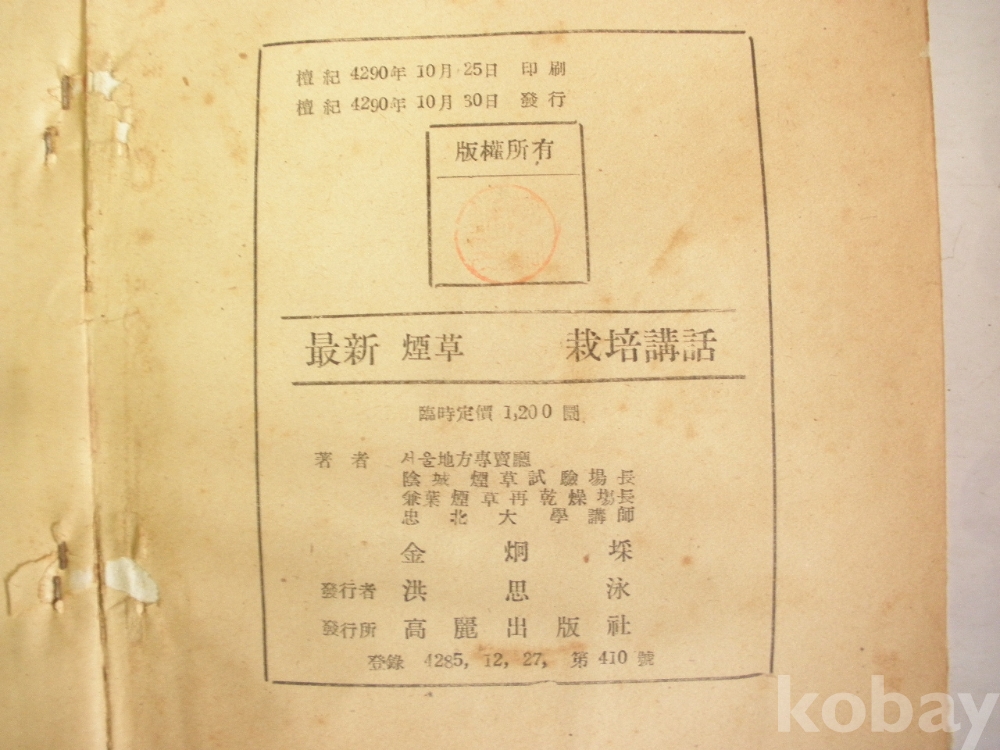 檀紀 4290年 10月 25日 印刷
檀紀 4290年 10月 30日 發行
版權所有
最新 煙草 栽培講話
臨時定價 1,200 圜
著者 서울地方專賣廳
陰城 煙草試驗場長
兼葉煙草再乾燥場長
忠北大學講師
金炯埰
發行者 洪思泳
發行所 高麗出版社
登錄 4285, 12, 27, 第 410 號
kobay